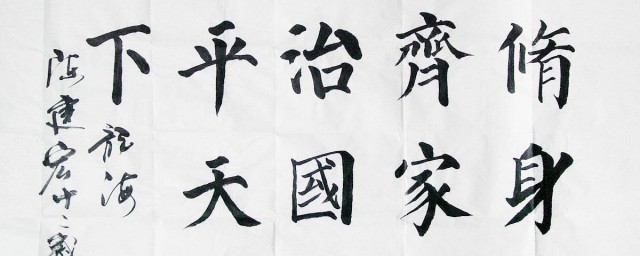 脩身
齊家
治國
平天
下
海
建宏十二歲